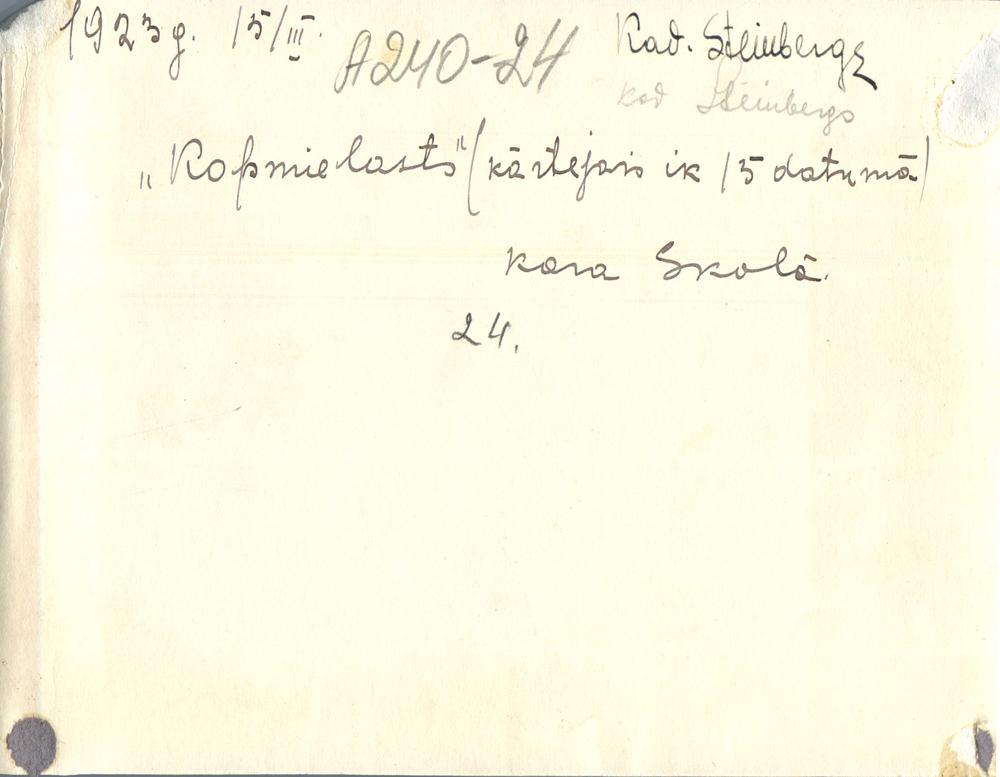 1923g. 15/III. A240-24 Kad. Steinbergs
kad Steinbergs
„Kopmielasts" (kārtējais ik 15 datumā)
kara Skolā.
24.